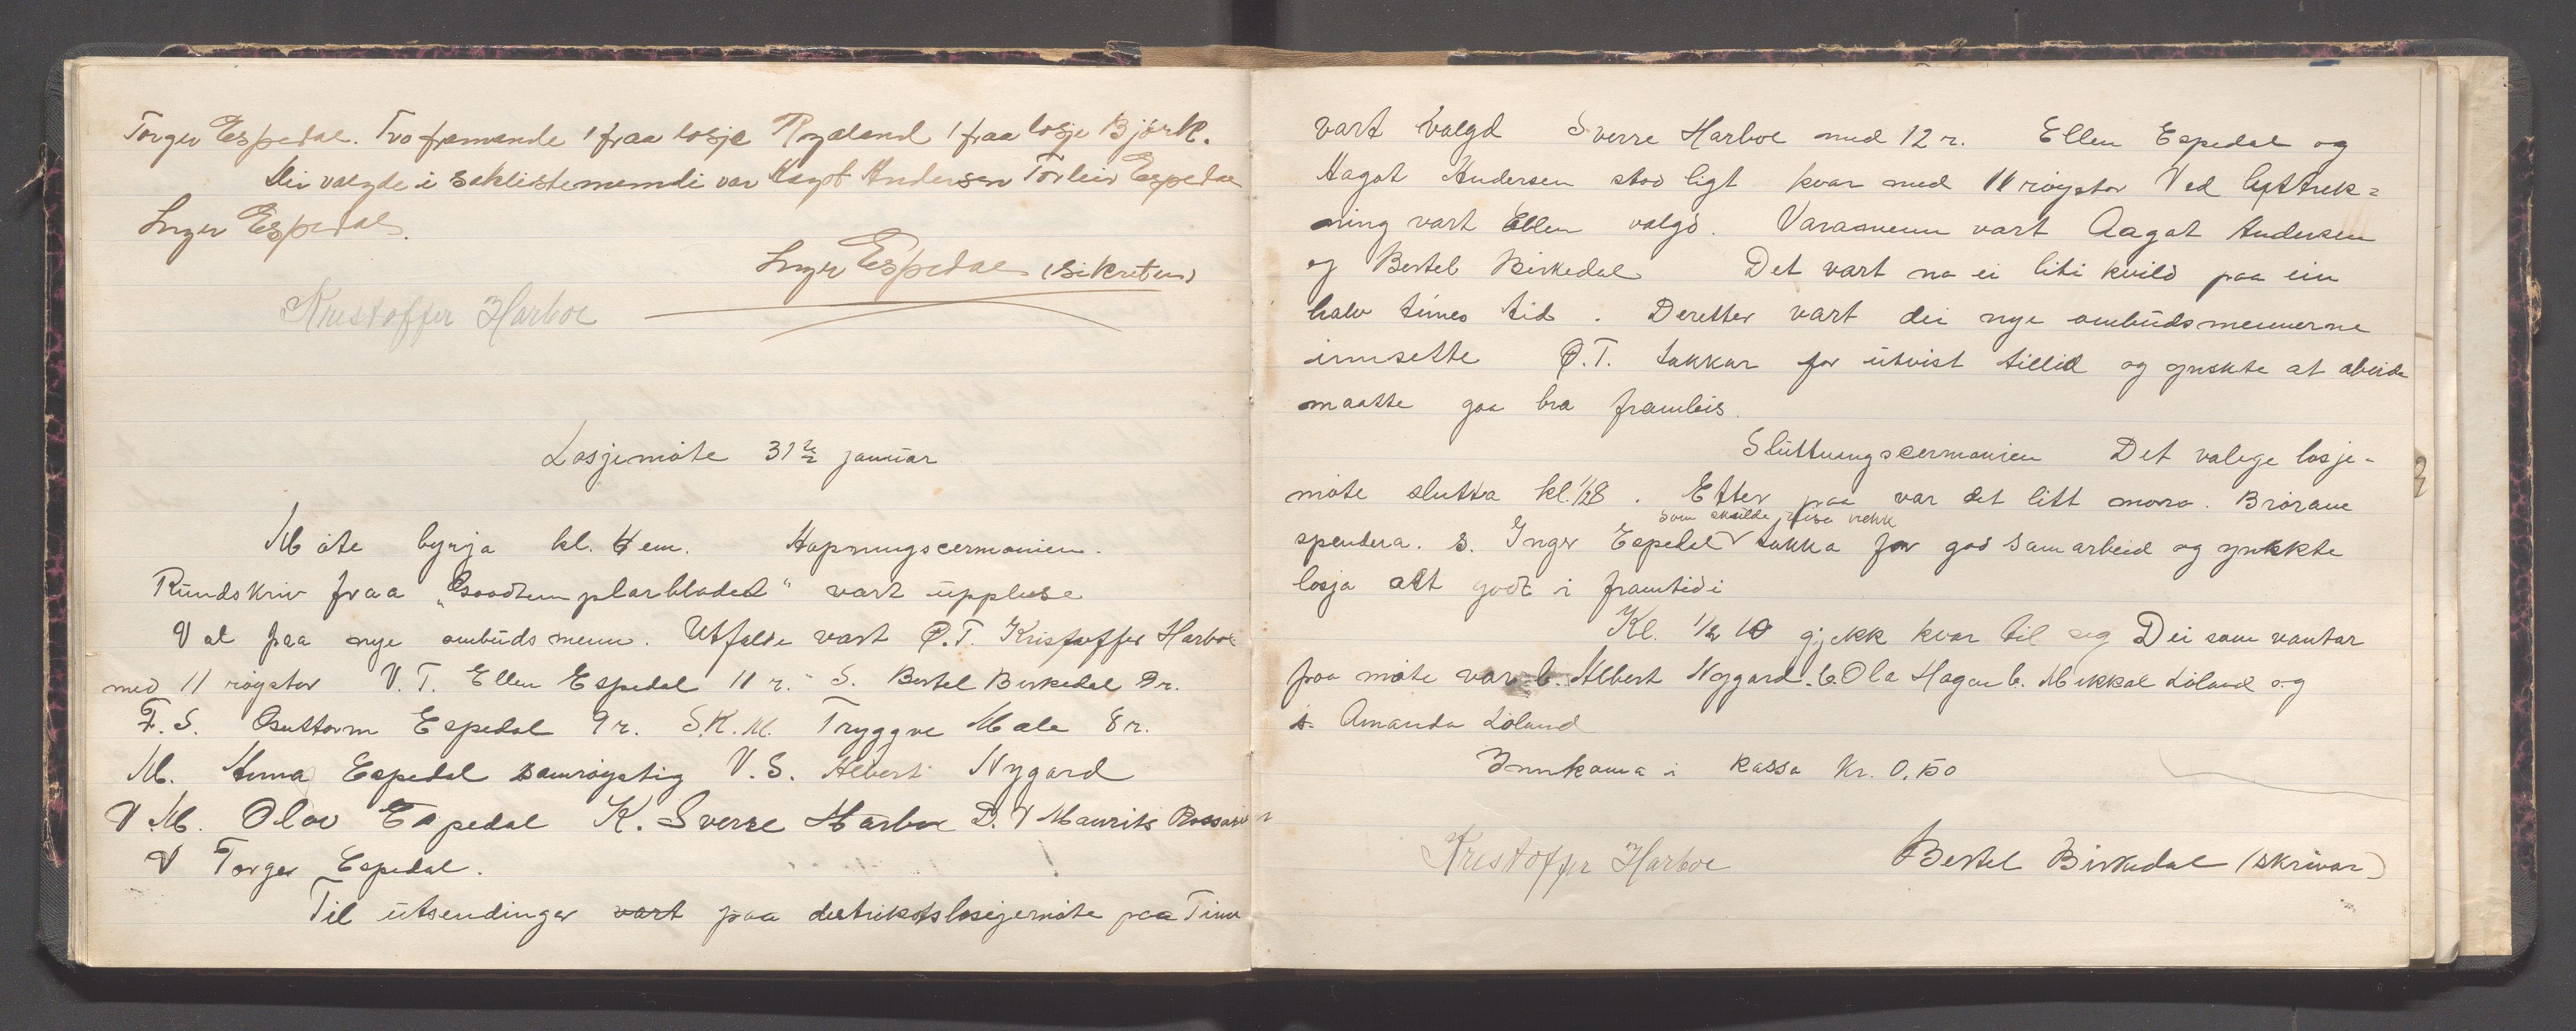 Torger Espedal. Tvo framande 1 fraa losje Rogaland 1 fraa losje Bjørk.
Dei valgde i saklistenemndi var Aagot Andersen Torleiv Espedal
Inger Espedal.
Inger Espedal (sikretær)
Kristoffer Harboe
Losjemøte 31 januar
Møte byrja kl. 4 em. Aapningscermonien.
Rundskriv fraa "Goodtemplarbladet" vart upplese
Val paa nye ombudsmenn. Utfalde vart Ø.T. Kristoffer Harboe
med 11 røystor V.T. Ellen Espedal 11 r. S. Bertel Birkedal 9 r.
F.S. Guttorm Espedal 9 r. S.K.M. Tryggve Mæle 8 r.
M. Anna Espedal samrøystig V.S. Albert Nygard
V.M. Olav Espedal K. Sverre Harboe D.V Maurits
V Torger Espedal.
Til utsendingar vart paa distriktslosjemøte paa Time
vart valgd Sverre Harboe med 12 r. Ellen Espedal og
Aagot Andersen stod ligt kvar med 11 røystor Ved luttrek=
ning vart Ellen valgd. Varamenn vart Aagot Andersen
og Bertel Birkedal Det vart no ei liti kvild paa ein
halv times tid. Deretter vart dei nye ombudsmennerne
innsette Ø.T. takkar for utvist tillid og ynskte at abeide
maatte gaa bra framleis.
Sluttningscermonien Det valege losje-
møte slutta kl. 1/28. Etter paa var det litt moro. Brørane
som skulde reisa vekk
spendera. s. Inger Espedal takka for god samarbeid og ynskte
losja alt godt i framtidi
Kl. 1/2 10 gjekk kvar til seg Dei som vantar
paa møte var b. Albert Nygard. b. Ola Hagen b. Mikkal Løland og
s. Amanda Løland
Innkoma i kassa Kr. 0,50
Kristoffer Harboe
Bertel Birkedal (skrivar)